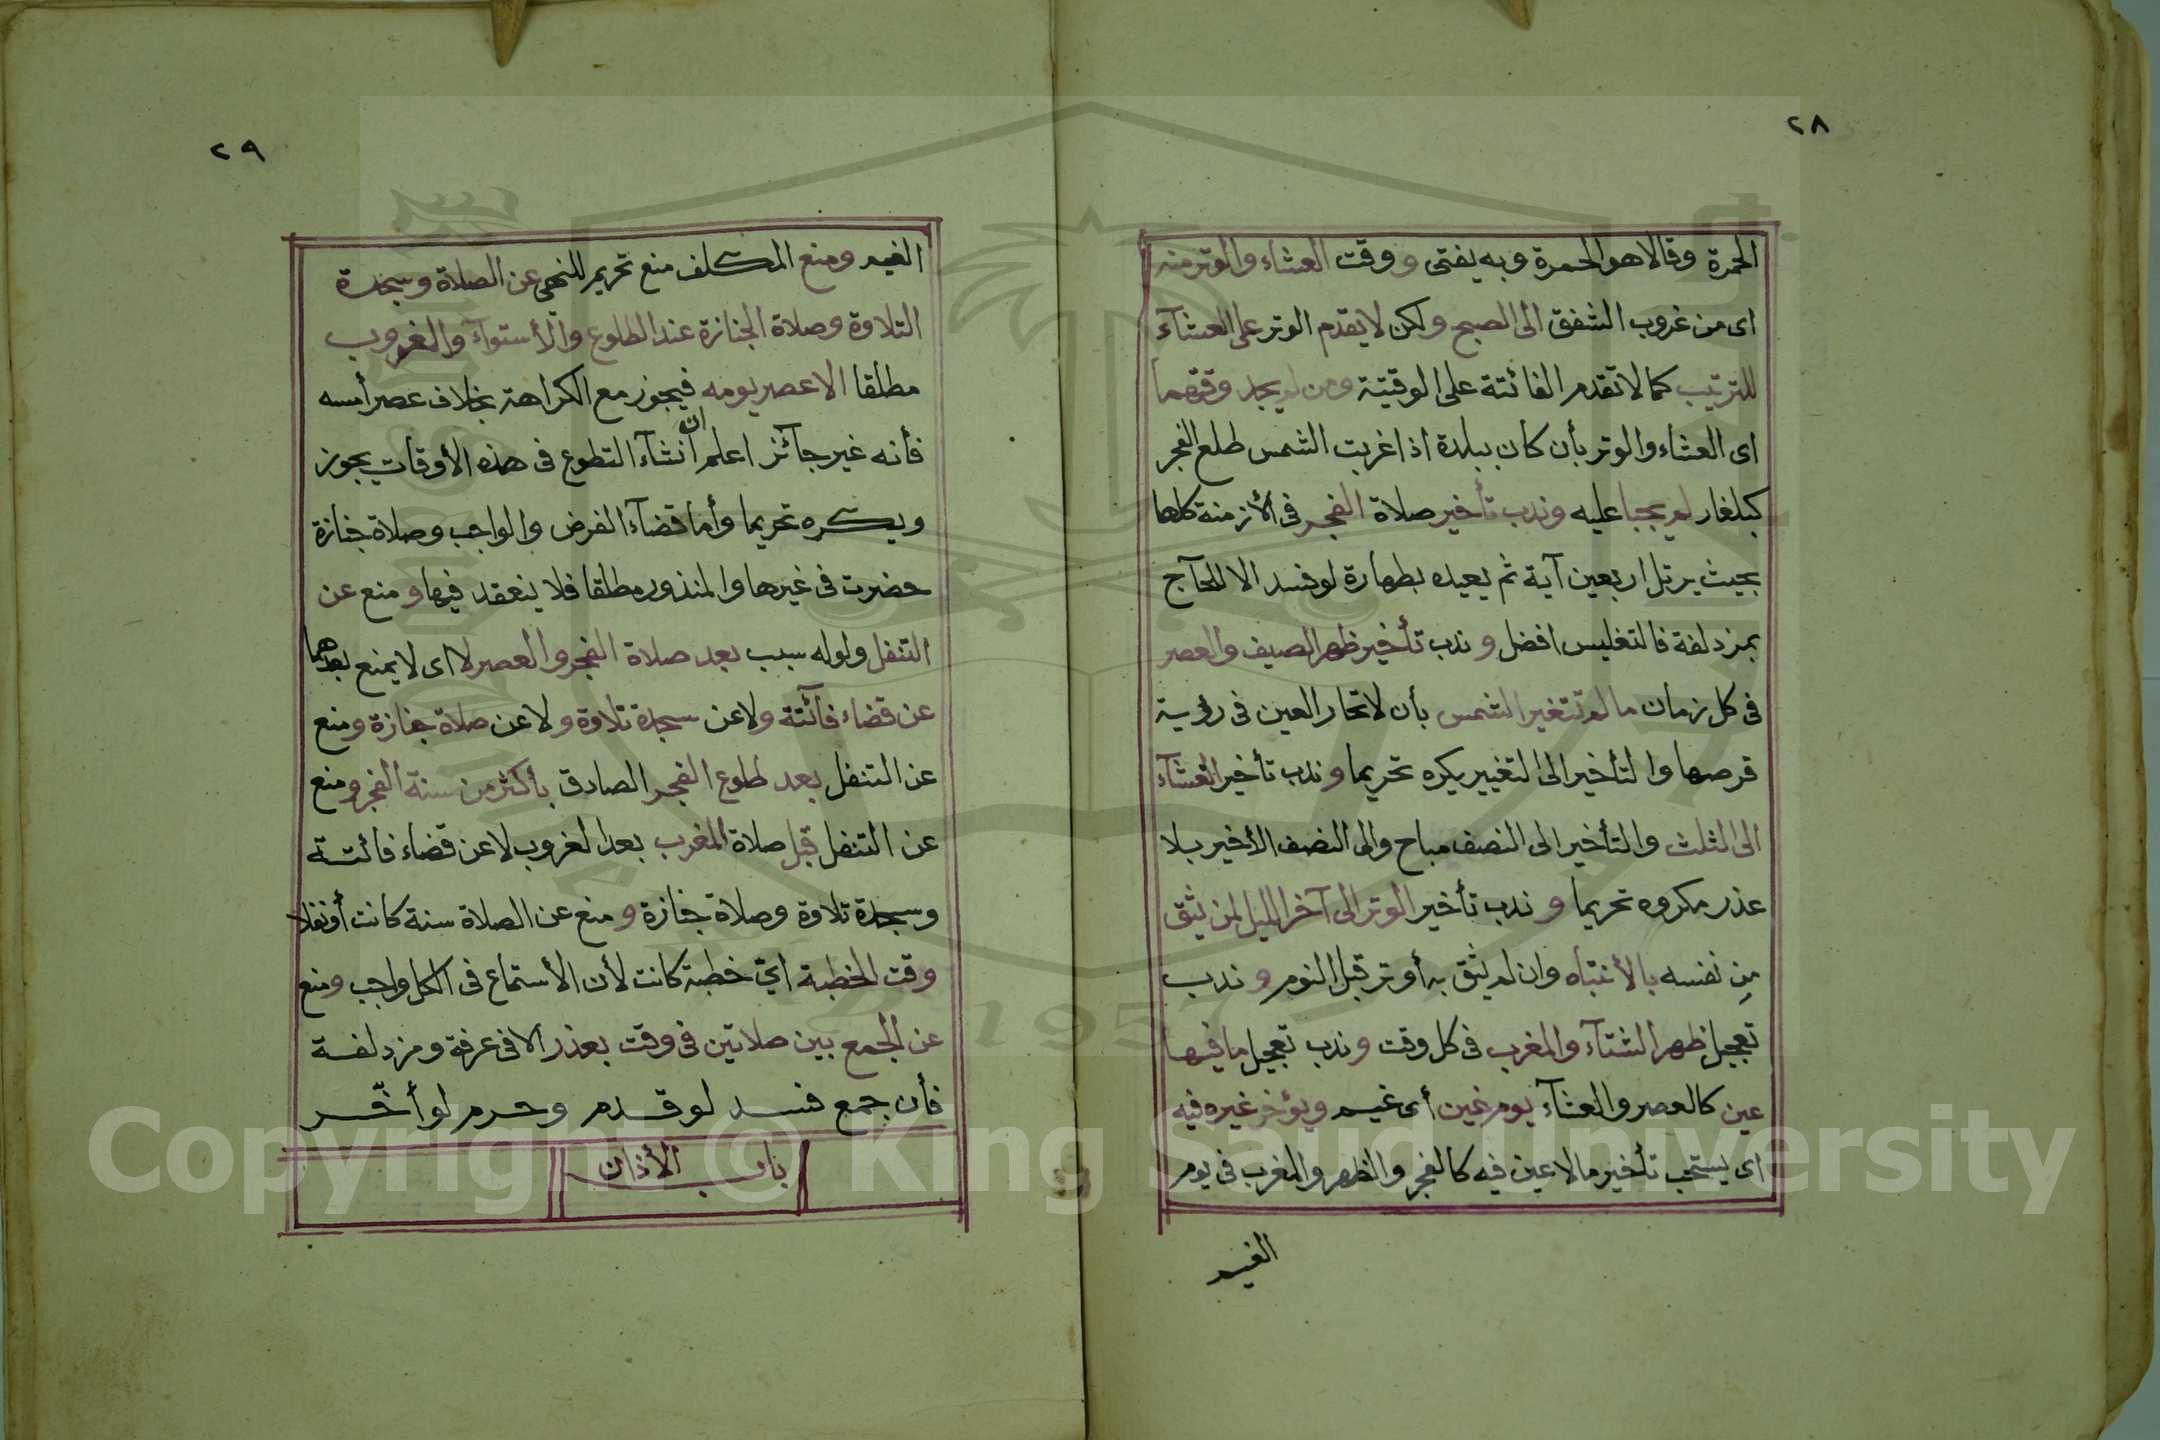 ٢٨
الحمرة وقالا هو الحمرة وبه يفتى ووقت العشاء والوتر منه
اى من غروب الشفق الى الصبح ولكن لا يقدم الوتر على العشآء
للترتيب كما لا تقدم الفائتة على الوقتية ومن لم يجد وقتهما
اى العشاء والوتر بأن كان ببلدة اذا غربت الشمس طلع الفجر
كبلغار لم يجبا عليه وندب تأخير صلاة الفجر فى الأزمنة كلها
بحيث يرتل اربعين آية ثم يعيده بطهارة لو فسد الا للحآج
بمزدلفة فالتغليس افضل وندب تأخير ظهر الصيف والعصر
فى كل زمان ما لم تتغير الشمس بأن لا تحار العين فى رؤية
قرصها والتأخير الى التغيير يكره تحريما وندب تأخير العشآء
الى الثلث والتأخير الى النصف مباح والى النصف الأخير بلا
عذر مكروه تحريما وندب تأخير الوتر الى آخر الليل لمن يثق
مِن نفسه بالأنتباه وان لم يثق به أوتر قبل النوم وندب
تعجيل ظهر الشتآء والمغرب فى كل وقت وندب تعجيل ما فيها
عين كالعصر والعشآء يوم غين أى غيم ويؤخر غيره فيه
اى يستحب تأخير ما لا عين فيه كالفجر والظهر والمغرب فى يوم
الغيم
٢٩
الغيم ومنع المكلف منع تحريم للنهى عن الصلاة وسجدة
التلاوة وصلاة الجنازة عند الطلوع والأستوآء والغروب
مطلقا الا عصر يومه فيجوز مع الكراهة بخلاف عصر أمسه
فأنه غير جآئز اعلم ان انشآء التطوع فى هذه الأوقات يجوز
ويكره تحريما وأما قضآء الفرض والواجب وصلاة جنازة
حضرت فى غيرها والمنذور مطلقا فلا ينعقد فيها ومنع عن
التنفل ولو له سبب بعد صلاة الفجر والعصر لا اى لا يمنع بعدهما
عن قضاء فآئتة ولا عن سجدة تلاوة ولا عن صلاة جنازة ومنع
عن التنفل بعد طلوع الفجر الصادق بأكثر من سنة الفجر ومنع
عن التنفل قبل صلاة المغرب بعد الغروب لا عن قضاء فائتة
وسجدة تلاوة وصلاة جنازة ومنع عن الصلاة سنة كانت أو نفلا
وقت الخطبة اىّ خطبة كانت لأن الأستماع فى الكل واجب ومنع
عن الجمع بين صلاتين فى وقت بعذر الا فى عرفة ومزدلفة
فأن جمع فسد لو قدم وحرم لو أخّر
باب الأذان
Copyright © King Saud University
1957